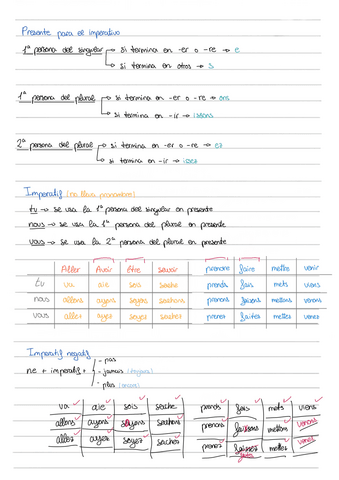 Presente para el imperativo
1ª persona del singular → si termina en -er o -re → e
→ si termina en otros → s
1ª persona del plural → si termina en -er o -re → ons
→ si termina en -ir → issons
2ª persona del plural → si termina en -er o -re → ez
→ si termina en -ir → issez
Imperatif (no lleva pronombre)
tu → se usa la 1ª persona del singular en presente
nous → se usa la 1ª persona del plural en presente
vous → se usa la 2ª persona del plural en presente
Aller Avoir être savoir prendre faire mettre venir
tu va aie sois sache prends fais mets viens
nous allons ayons soyons sachons prenons faisons mettons venons
vous allez ayez soyez sachez prenez faites mettez venez
Imperatif negatif
- pas
ne + imperatif + - jamais
- plus
va aie sois sache prends fais mets viens
allons ayons soyons sachons prenons faisons mettons venons
allez ayez soyez sachez prenez mettez venez
faites